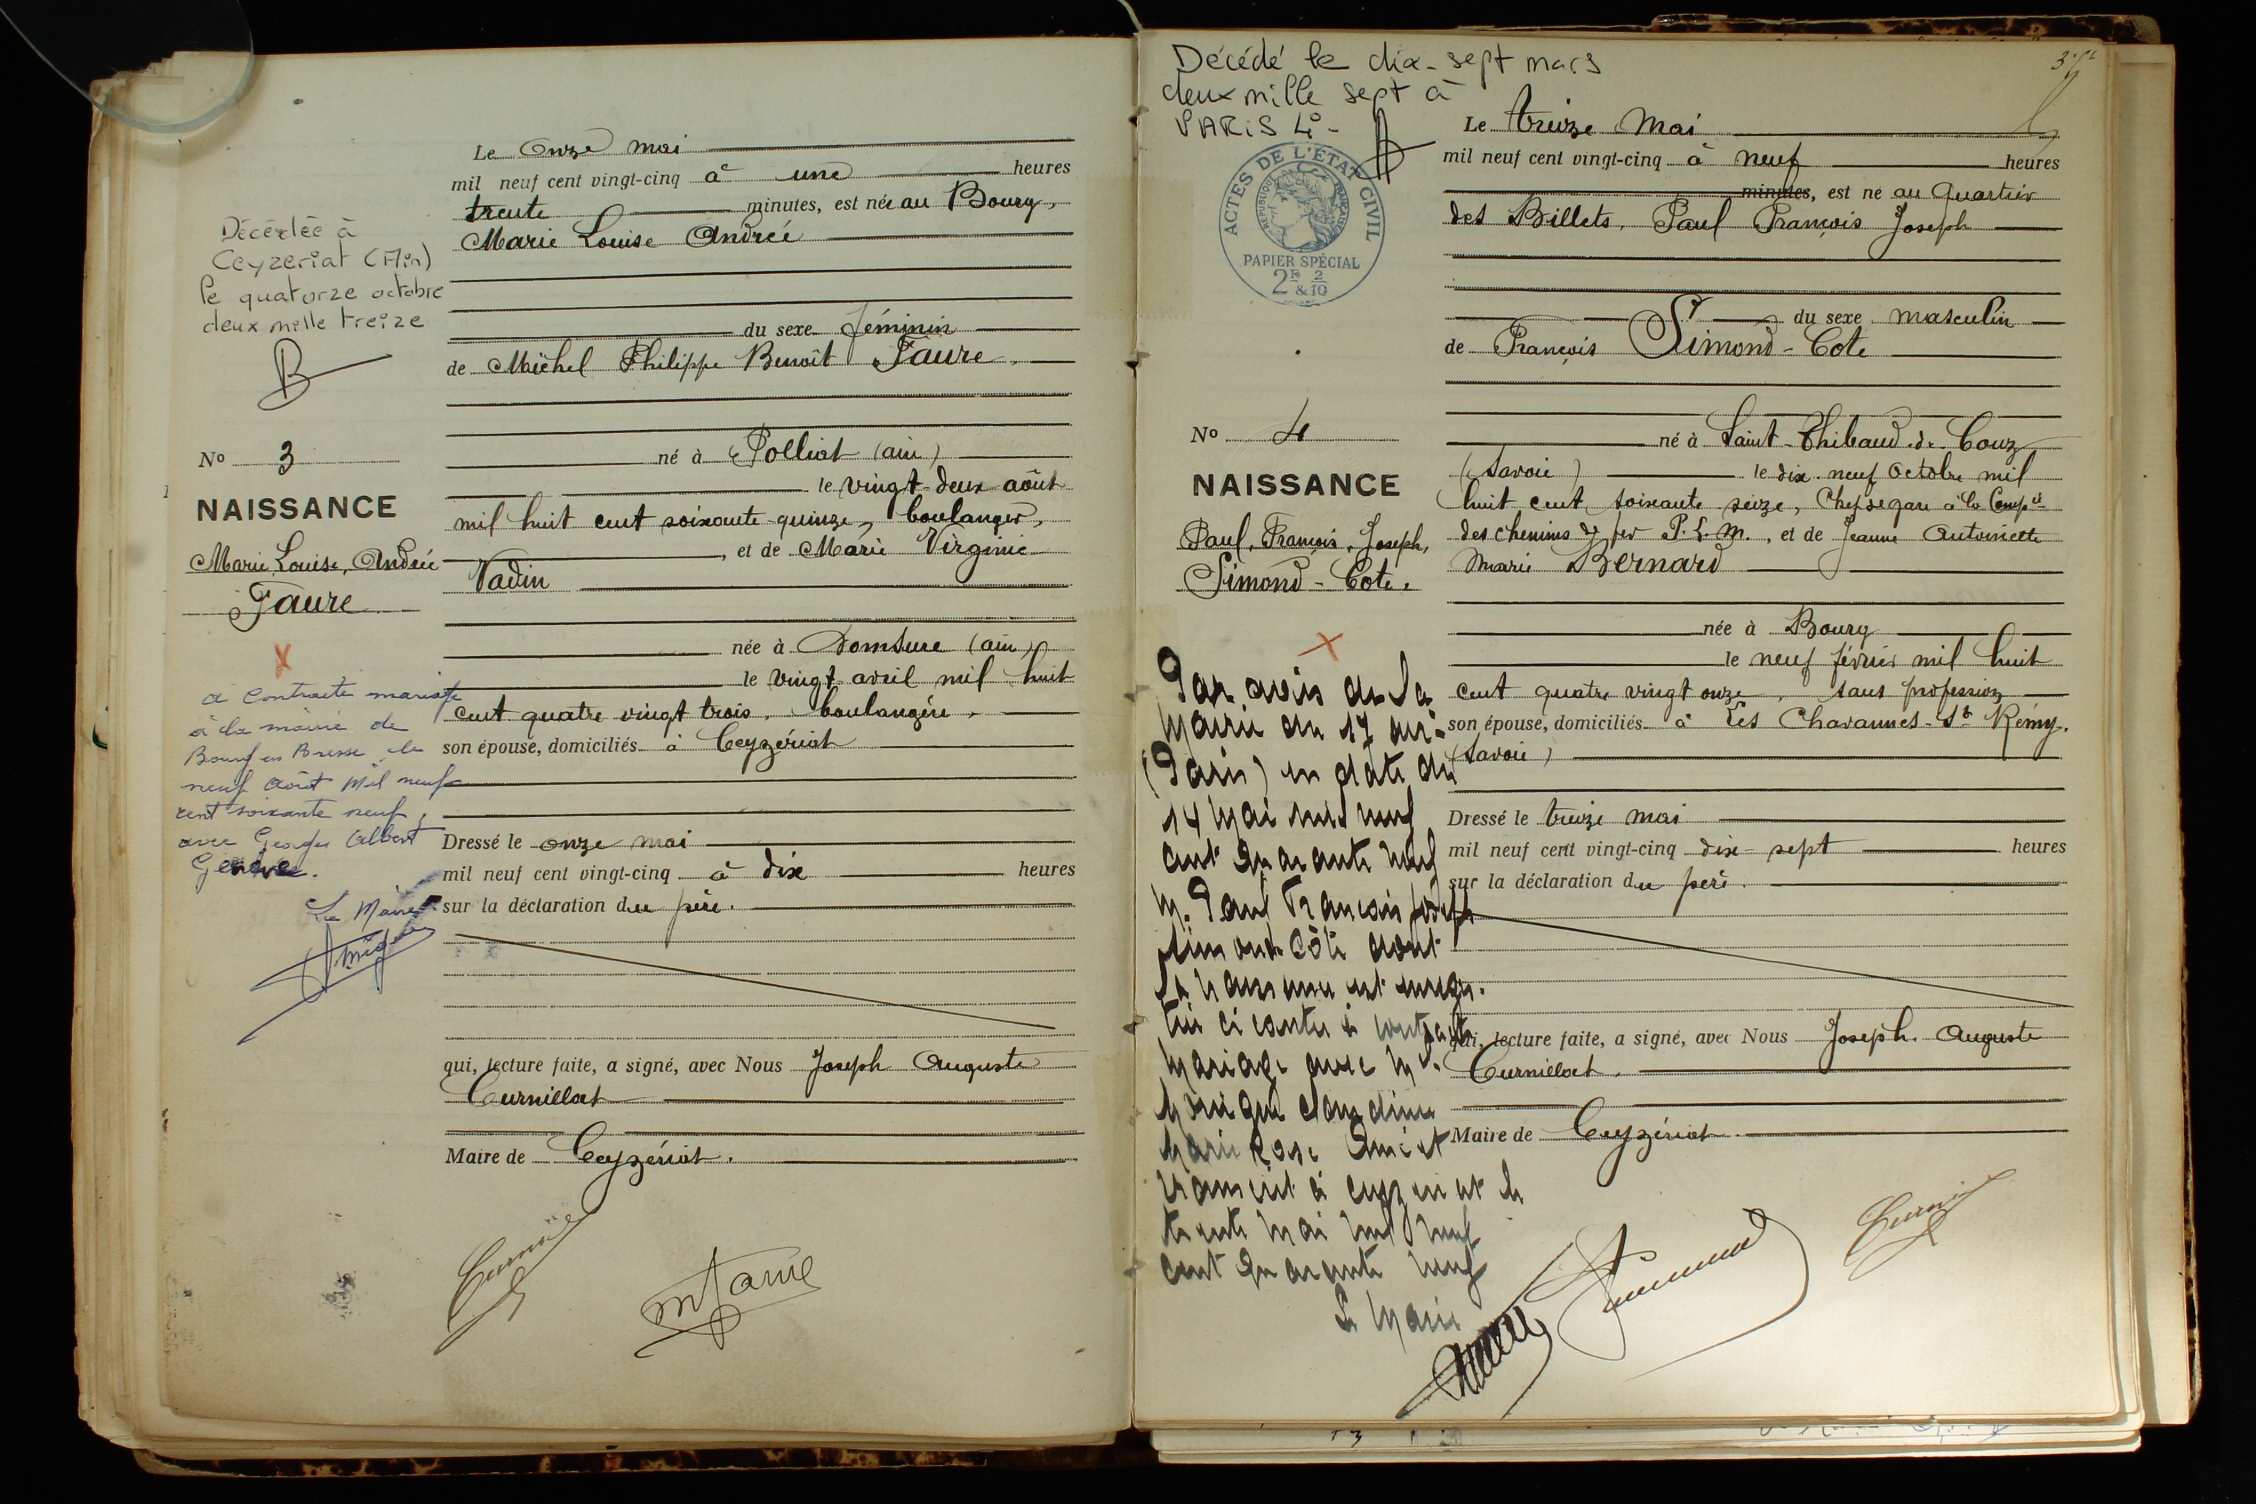 Le onze mai
mil neuf cent vingt-cinq à une heures
trente minutes, est née au Bourg,
Marie Louise Andrée
du sexe féminin
de Michel Philippe Benoît Faure.
né à Polliat (ain)
le vingt-deux août
mil huit cent soixante-quinze, boulanger,
, et de Marie Virginie
Vadin
née à Domsure (ain)
le vingt avril mil huit
cent quatre vingt trois, boulangère,
son épouse, domiciliés à Ceyzériat
Dressé le onze mai
mil neuf cent vingt-cinq à dix heures
sur la déclaration du père.
qui, lecture faite, a signé, avec Nous Joseph Auguste
Curnillat
Maire de Ceyzériat.
mfaure
Décédée à
Ceyzeriat (Ain)
le quatorze octobre
deux mille treize
No 3
NAISSANCE
Marie, Louise, Andrée
Faure
X
a contracté mariage
à la mairie de
Bourg en Bresse, le
neuf août mil neuf
cent soixante neuf,
avec Georges Albert
Genève.
Le Maire
Décédé le dix-sept mars
deux mille sept à
PARIS 4°-
ACTES DE L'ÉTAT CIVIL
RÉPUBLIQUE FRANÇAISE
PAPIER SPÉCIAL
2F 2
&10
Le treize Mai
mil neuf cent vingt-cinq à neuf heures
minutes, est né au Quartier
des Billets, Paul François Joseph
du sexe masculin
de François Simond-Cote
né à Saint-Thibaud-de-Couz
(Savoie) le dix-neuf Octobre mil
huit cent soixante seize, Chef de gare à la Comp ie
des chemins de fer P.L.M., et de Jeanne Antoinette
Marie Bernard
née à Bourg
le neuf février mil huit
cent quatre vingt onze, sans profession
son épouse, domiciliés à Les Chavannes-St Rémy.
(Savoie)
Dressé le treize mai
mil neuf cent vingt-cinq dix-sept heures
sur la déclaration du père.
qui, lecture faite, a signé, avec Nous Joseph Auguste
Curnillat.
Maire de Ceyzériat
No 4
NAISSANCE
Paul, François, Joseph,
Simond-Cote.
X
Par avis de la
Mairie du 17 arr.
(Paris) en date du
14 Mai mil neuf
cent quarante neuf
M. Paul François Joseph
Simond-Côte dont
la naissance est
ci contre a contracté
mariage avec Mle
Claudine
Marie Rose
transcrit à Ceyzeriat le
trente Mai mil neuf
cent quarante neuf
Le Maire